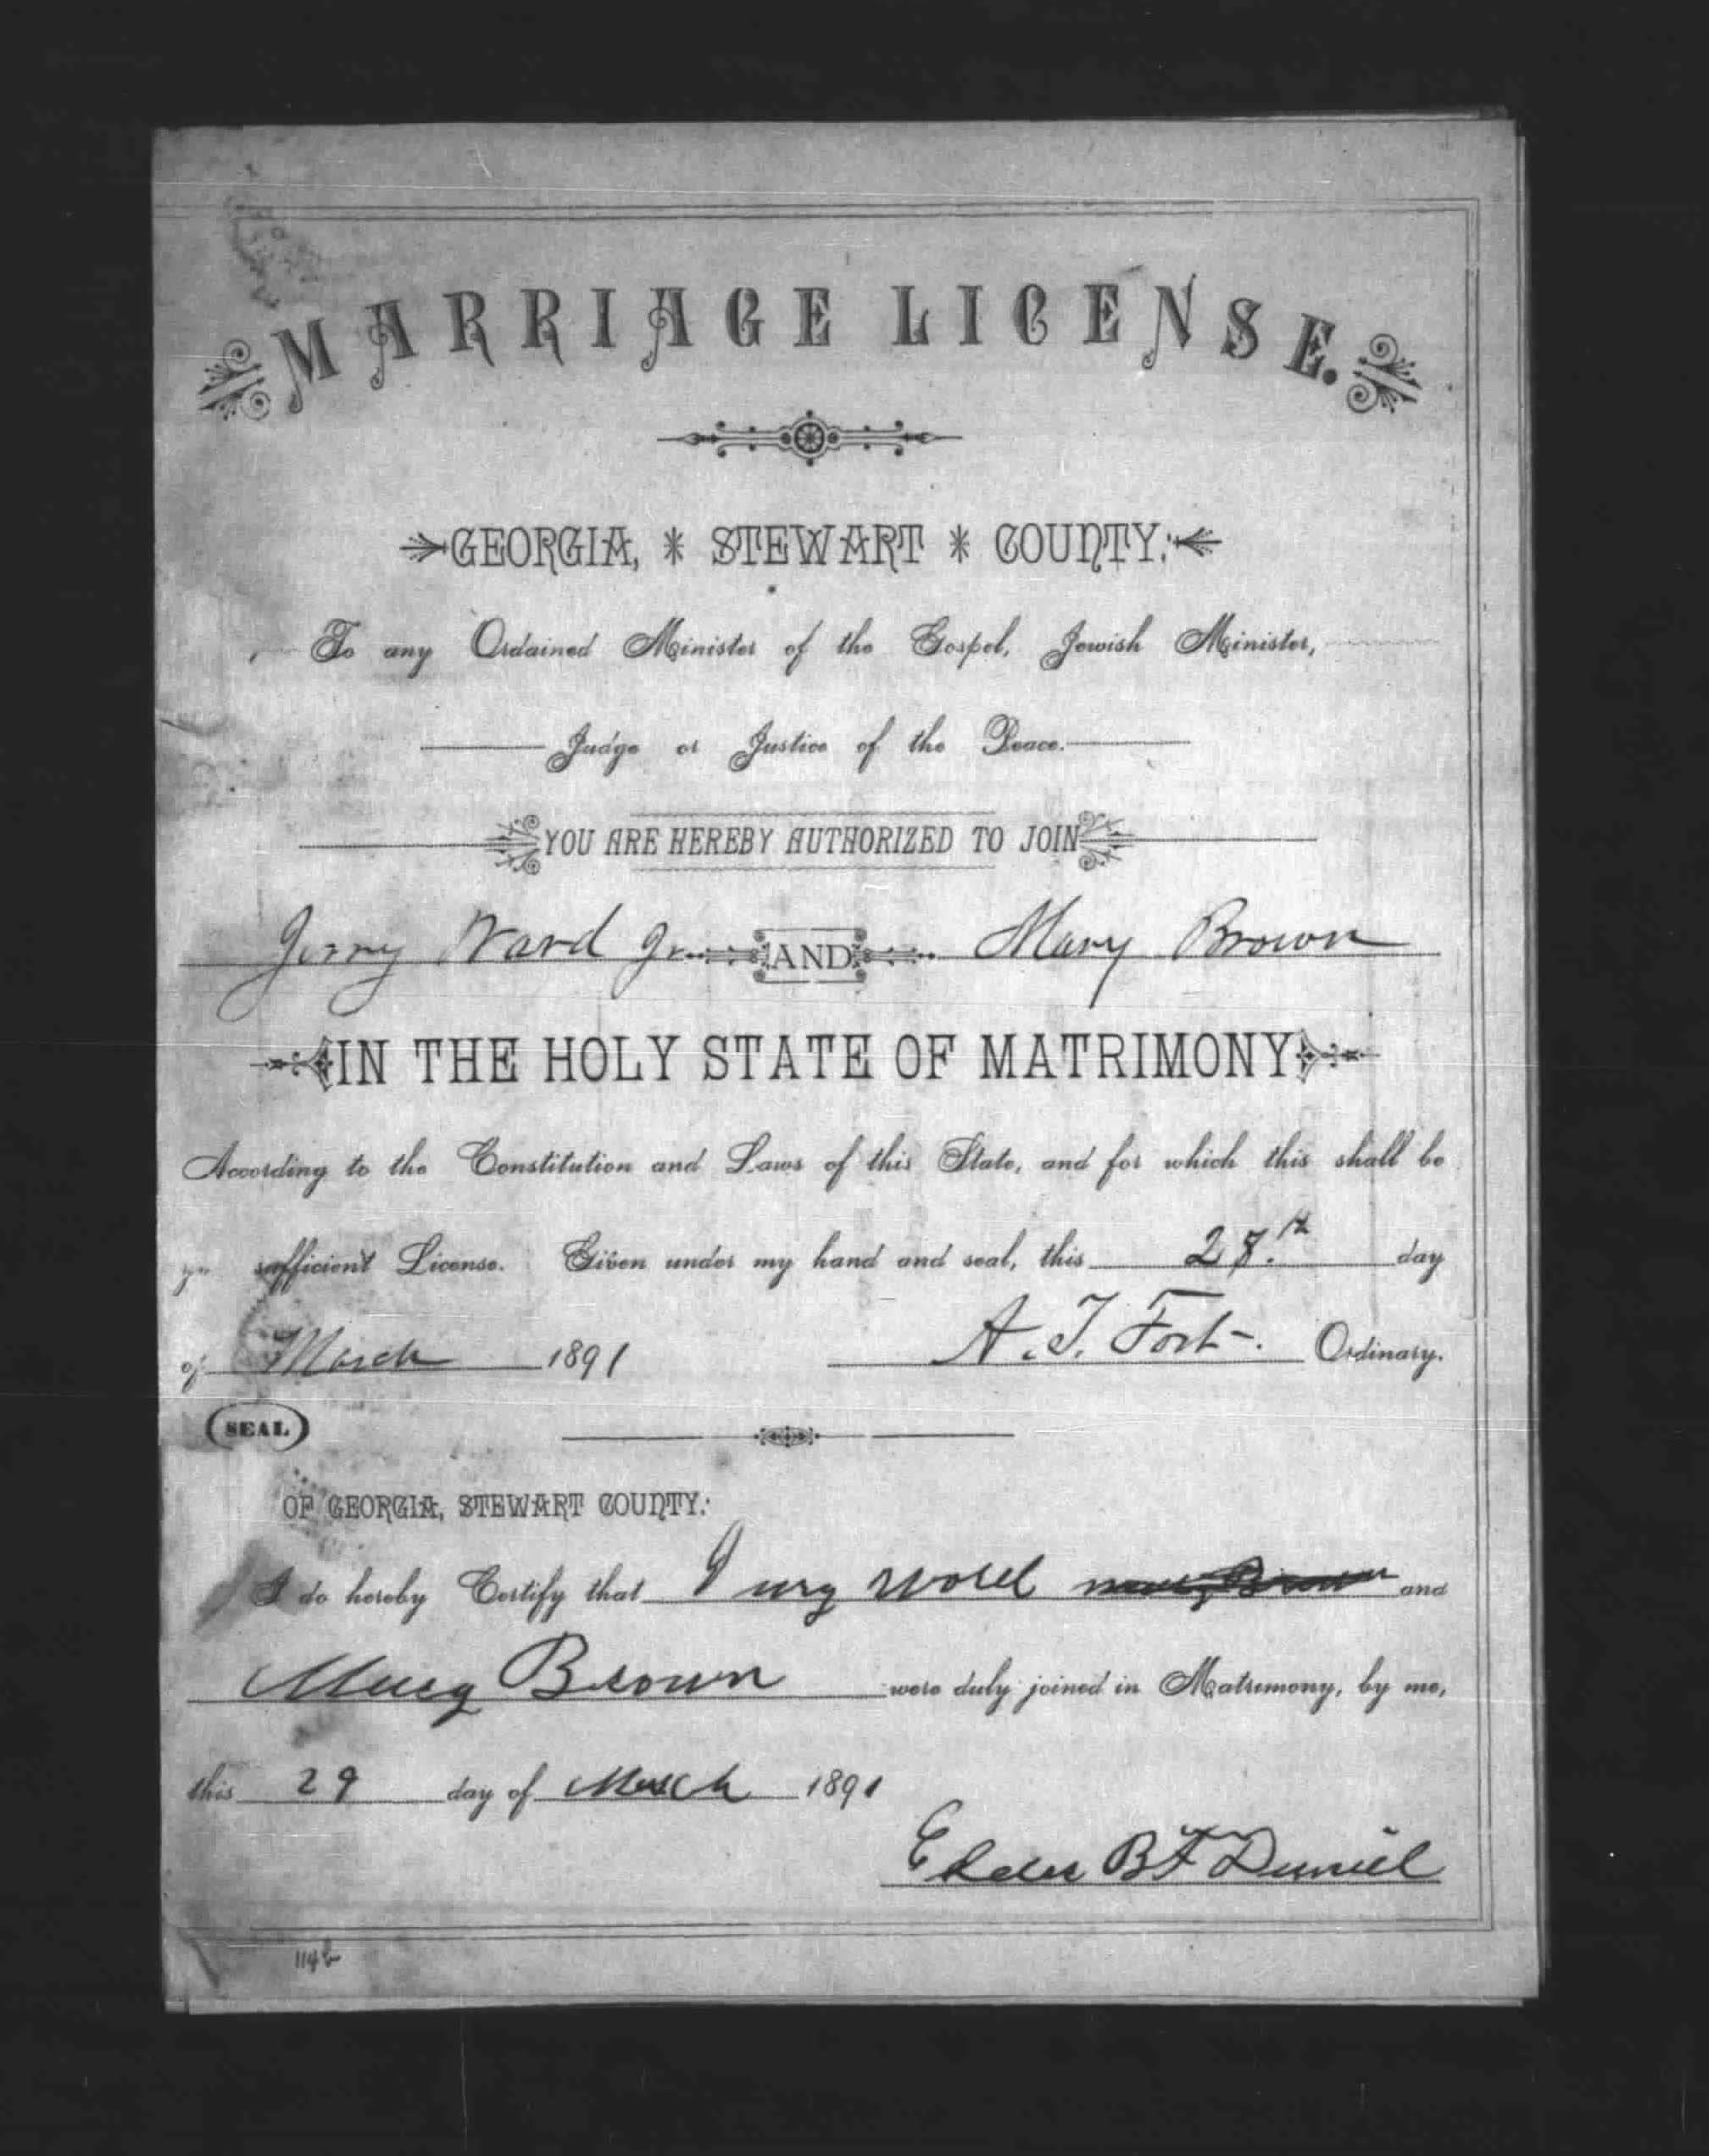 MARRIAGE LICENSE.
GEORGIA, * STEWART * COUNTY:
To any Ordained Minister of the Gospel, Jewish Minister,
Judge or Justice of the Peace.
YOU ARE HEREBY AUTHORIZED TO JOIN
Jerry Ward Jr. AND Mary Brown
IN THE HOLY STATE OF MATRIMONY
According to the Constitution and Laws of this State, and for which this shall be
sufficient License. Given under my hand and seal, this 28.th day
of March 1891 A. T. Fort. Ordinary.
SEAL
OF GEORGIA, STEWART COUNTY:
I do hereby Certify that and
Brown were duly joined in Matrimony, by me,
this 29 day of March 1891
Elder B F Daniel